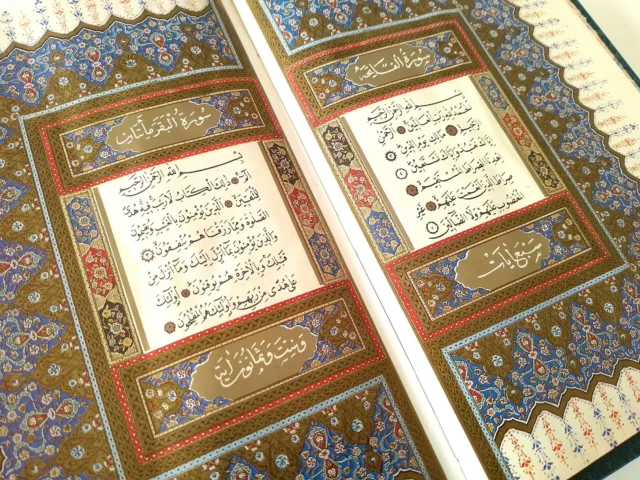 سُورَةُ الْفَاتِحَةِ
بِسْمِ اللهِ الرَّحْمٰنِ الرَّحِيمِ
اَلْحَمْدُ لِلهِ رَبِّ الْعَالَمِينَ اَلرَّحْمٰنِ
الرَّحِيمِ مَالِكِ يَوْمِ الدِّينِ
اِيَّاكَ نَعْبُدُ وَاِيَّاكَ نَسْتَعِينُ
اِهْدِنَا الصِّرَاطَ الْمُسْتَقِيمَ
صِرَاطَ الَّذِينَ اَنْعَمْتَ عَلَيْهِمْ غَيْرِ
الْمَغْضُوبِ عَلَيْهِمْ وَلَا الضَّالِّينَ
سَبْعُ اٰيَاتٍ
سُورَةُ الْبَقَرَةِ مِائَتَانِ
بِسْمِ اللهِ الرَّحْمٰنِ الرَّحِيمِ
الٓمٓ ذٰلِكَ الْكِتَابُ لَا رَيْبَ فِيهِ هُدًى
لِلْمُتَّقِينَ اَلَّذِينَ يُؤْمِنُونَ بِالْغَيْبِ وَيُقِيمُونَ
الصَّلٰوةَ وَمِمَّا رَزَقْنَاهُمْ يُنْفِقُونَ
وَالَّذِينَ يُؤْمِنُونَ بِمَا اُنْزِلَ اِلَيْكَ وَمَا اُنْزِلَ مِنْ
قَبْلِكَ وَبِالْاٰخِرَةِ هُمْ يُوقِنُونَ اُولٰئِكَ
عَلٰى هُدًى مِنْ رَبِّهِمْ وَاُولٰئِكَ هُمُ الْمُفْلِحُونَ
وَسِتٌّ وَثَمَانُونَ اٰيَةً